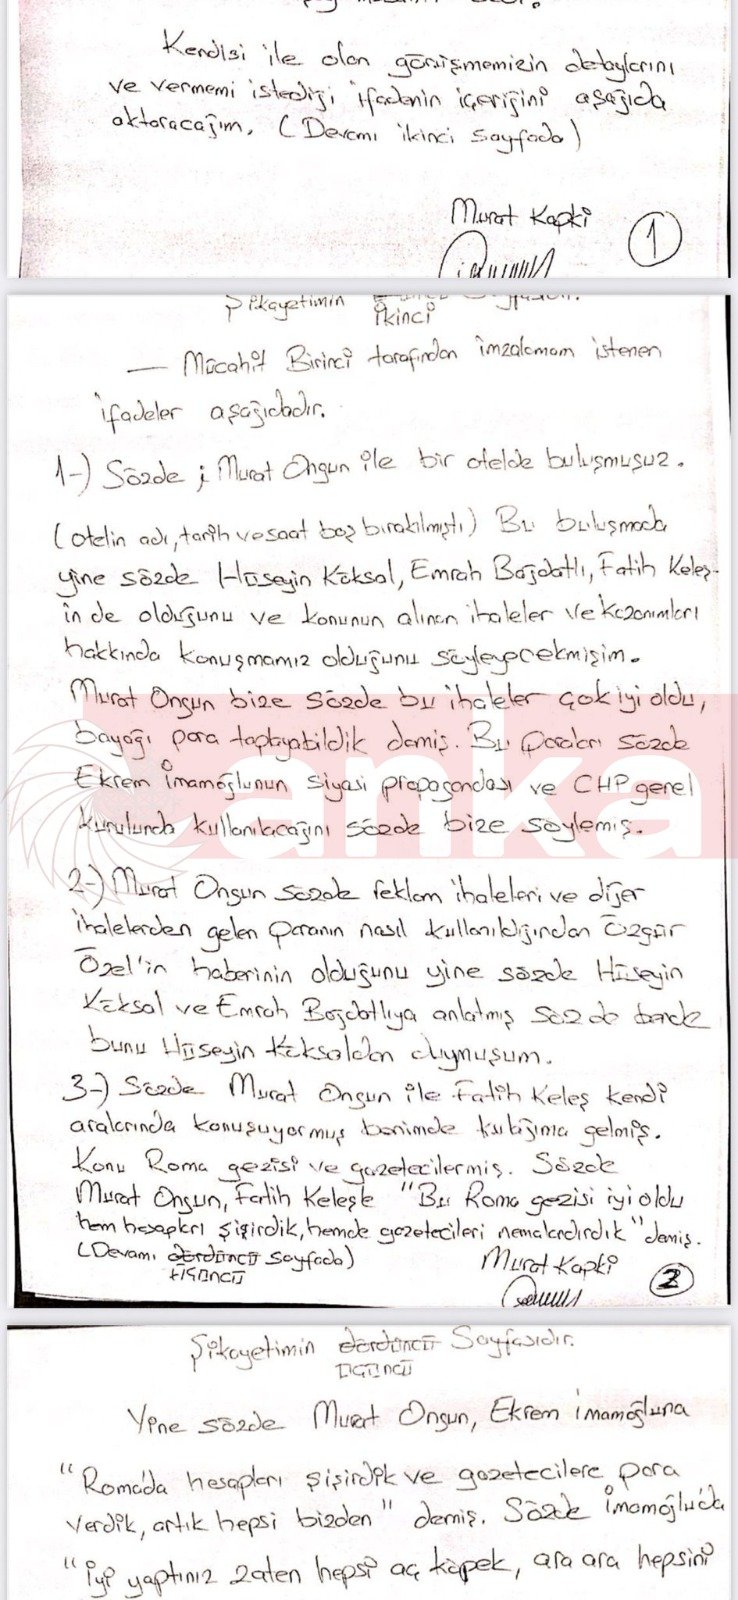 Kendisi ile olan görüşmemizin detaylarını
ve vermemi istediği ifadenin içeriğini aşağıda
aktaracağım. (Devamı ikinci sayfada)
Murat Kapki
1
Şikayetimin
ikinci
— Mücahit Birinci tarafından imzalamam istenen
ifadeler aşağıdadır.
1-) Sözde ; Murat Ongun ile bir otelde buluşmuşuz.
(otelin adı, tarih ve saat boş bırakılmıştı) Bu buluşmada
yine sözde Hüseyin Köksal, Emrah Bağdatlı, Fatih Keleş-
in de olduğunu ve konunun alınan ihaleler ve kazanımları
hakkında konuşmamız olduğunu söyleyecekmişim.
Murat Ongun bize sözde bu ihaleler çok iyi oldu,
bayağı para toplayabildik demiş. Bu paraları sözde
Ekrem İmamoğlunun siyasi propagandası ve CHP genel
kurulunda kullanılacağını sözde bize söylemiş.
anka
2-) Murat Ongun sözde reklam ihaleleri ve diğer
ihalelerden gelen paranın nasıl kullanıldığından Özgür
Özel'in haberinin olduğunu yine sözde Hüseyin
Köksal ve Emrah Bağdatlıya anlatmış sözde bende
bunu Hüseyin Köksaldan duymuşum.
3-) Sözde Murat Ongun ile Fatih Keleş kendi
aralarında konuşuyormuş benimde kulağıma gelmiş.
Konu Roma gezisi ve gazetecilermiş. Sözde
Murat Ongun, Fatih Keleşe "Bu Roma gezisi iyi oldu
hem hesapları şişirdik, hemde gazetecileri nemalandırdık" demiş.
(Devamı dördüncü sayfada)
üçüncü
Murat Kapki
2
Şikayetimin dördüncü Sayfasıdır.
üçüncü
Yine sözde Murat Ongun, Ekrem İmamoğluna
"Roma'da hesapları şişirdik ve gazetecilere para
verdik, artık hepsi bizden" demiş. Sözde İmamoğlu'da
"iyi yaptınız zaten hepsi aç köpek, ara ara hepsini